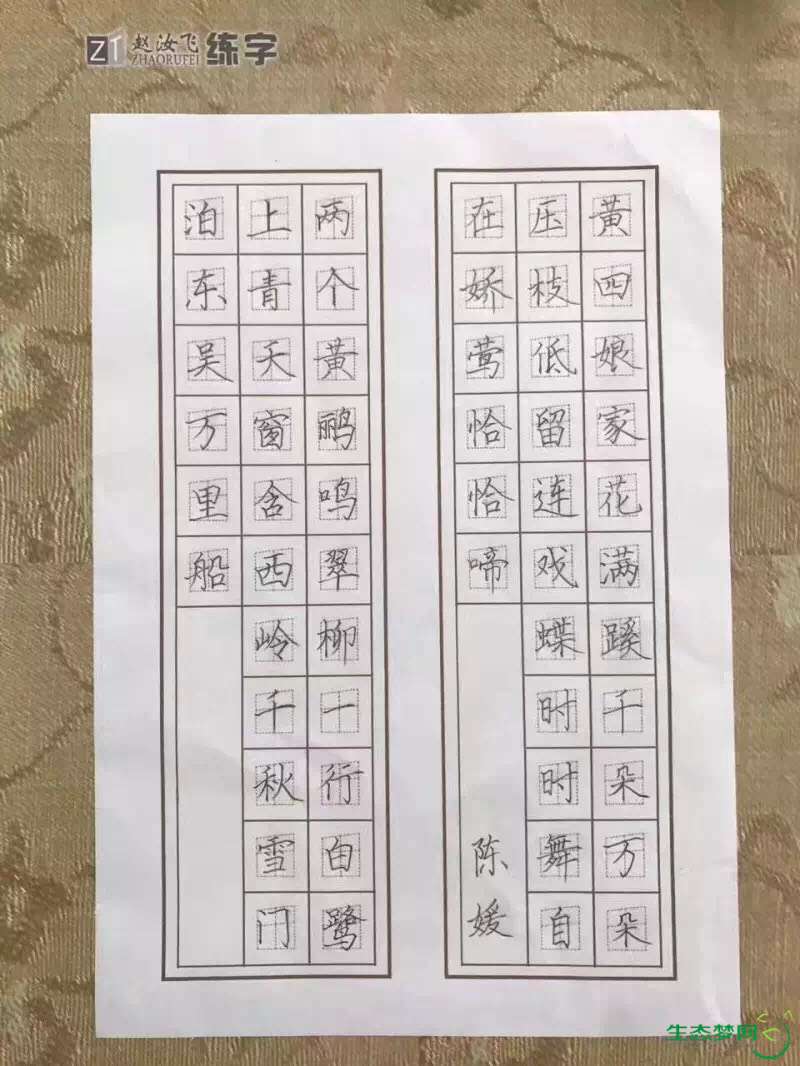 ZI 赵汝飞 练字
ZHAORUFEI
黄四娘家花满蹊千朵万朵
压枝低留连戏蝶时时舞自
在娇莺恰恰啼
陈媛
两个黄鹂鸣翠柳一行白鹭
上青天窗含西岭千秋雪门
泊东吴万里船
生态梦网